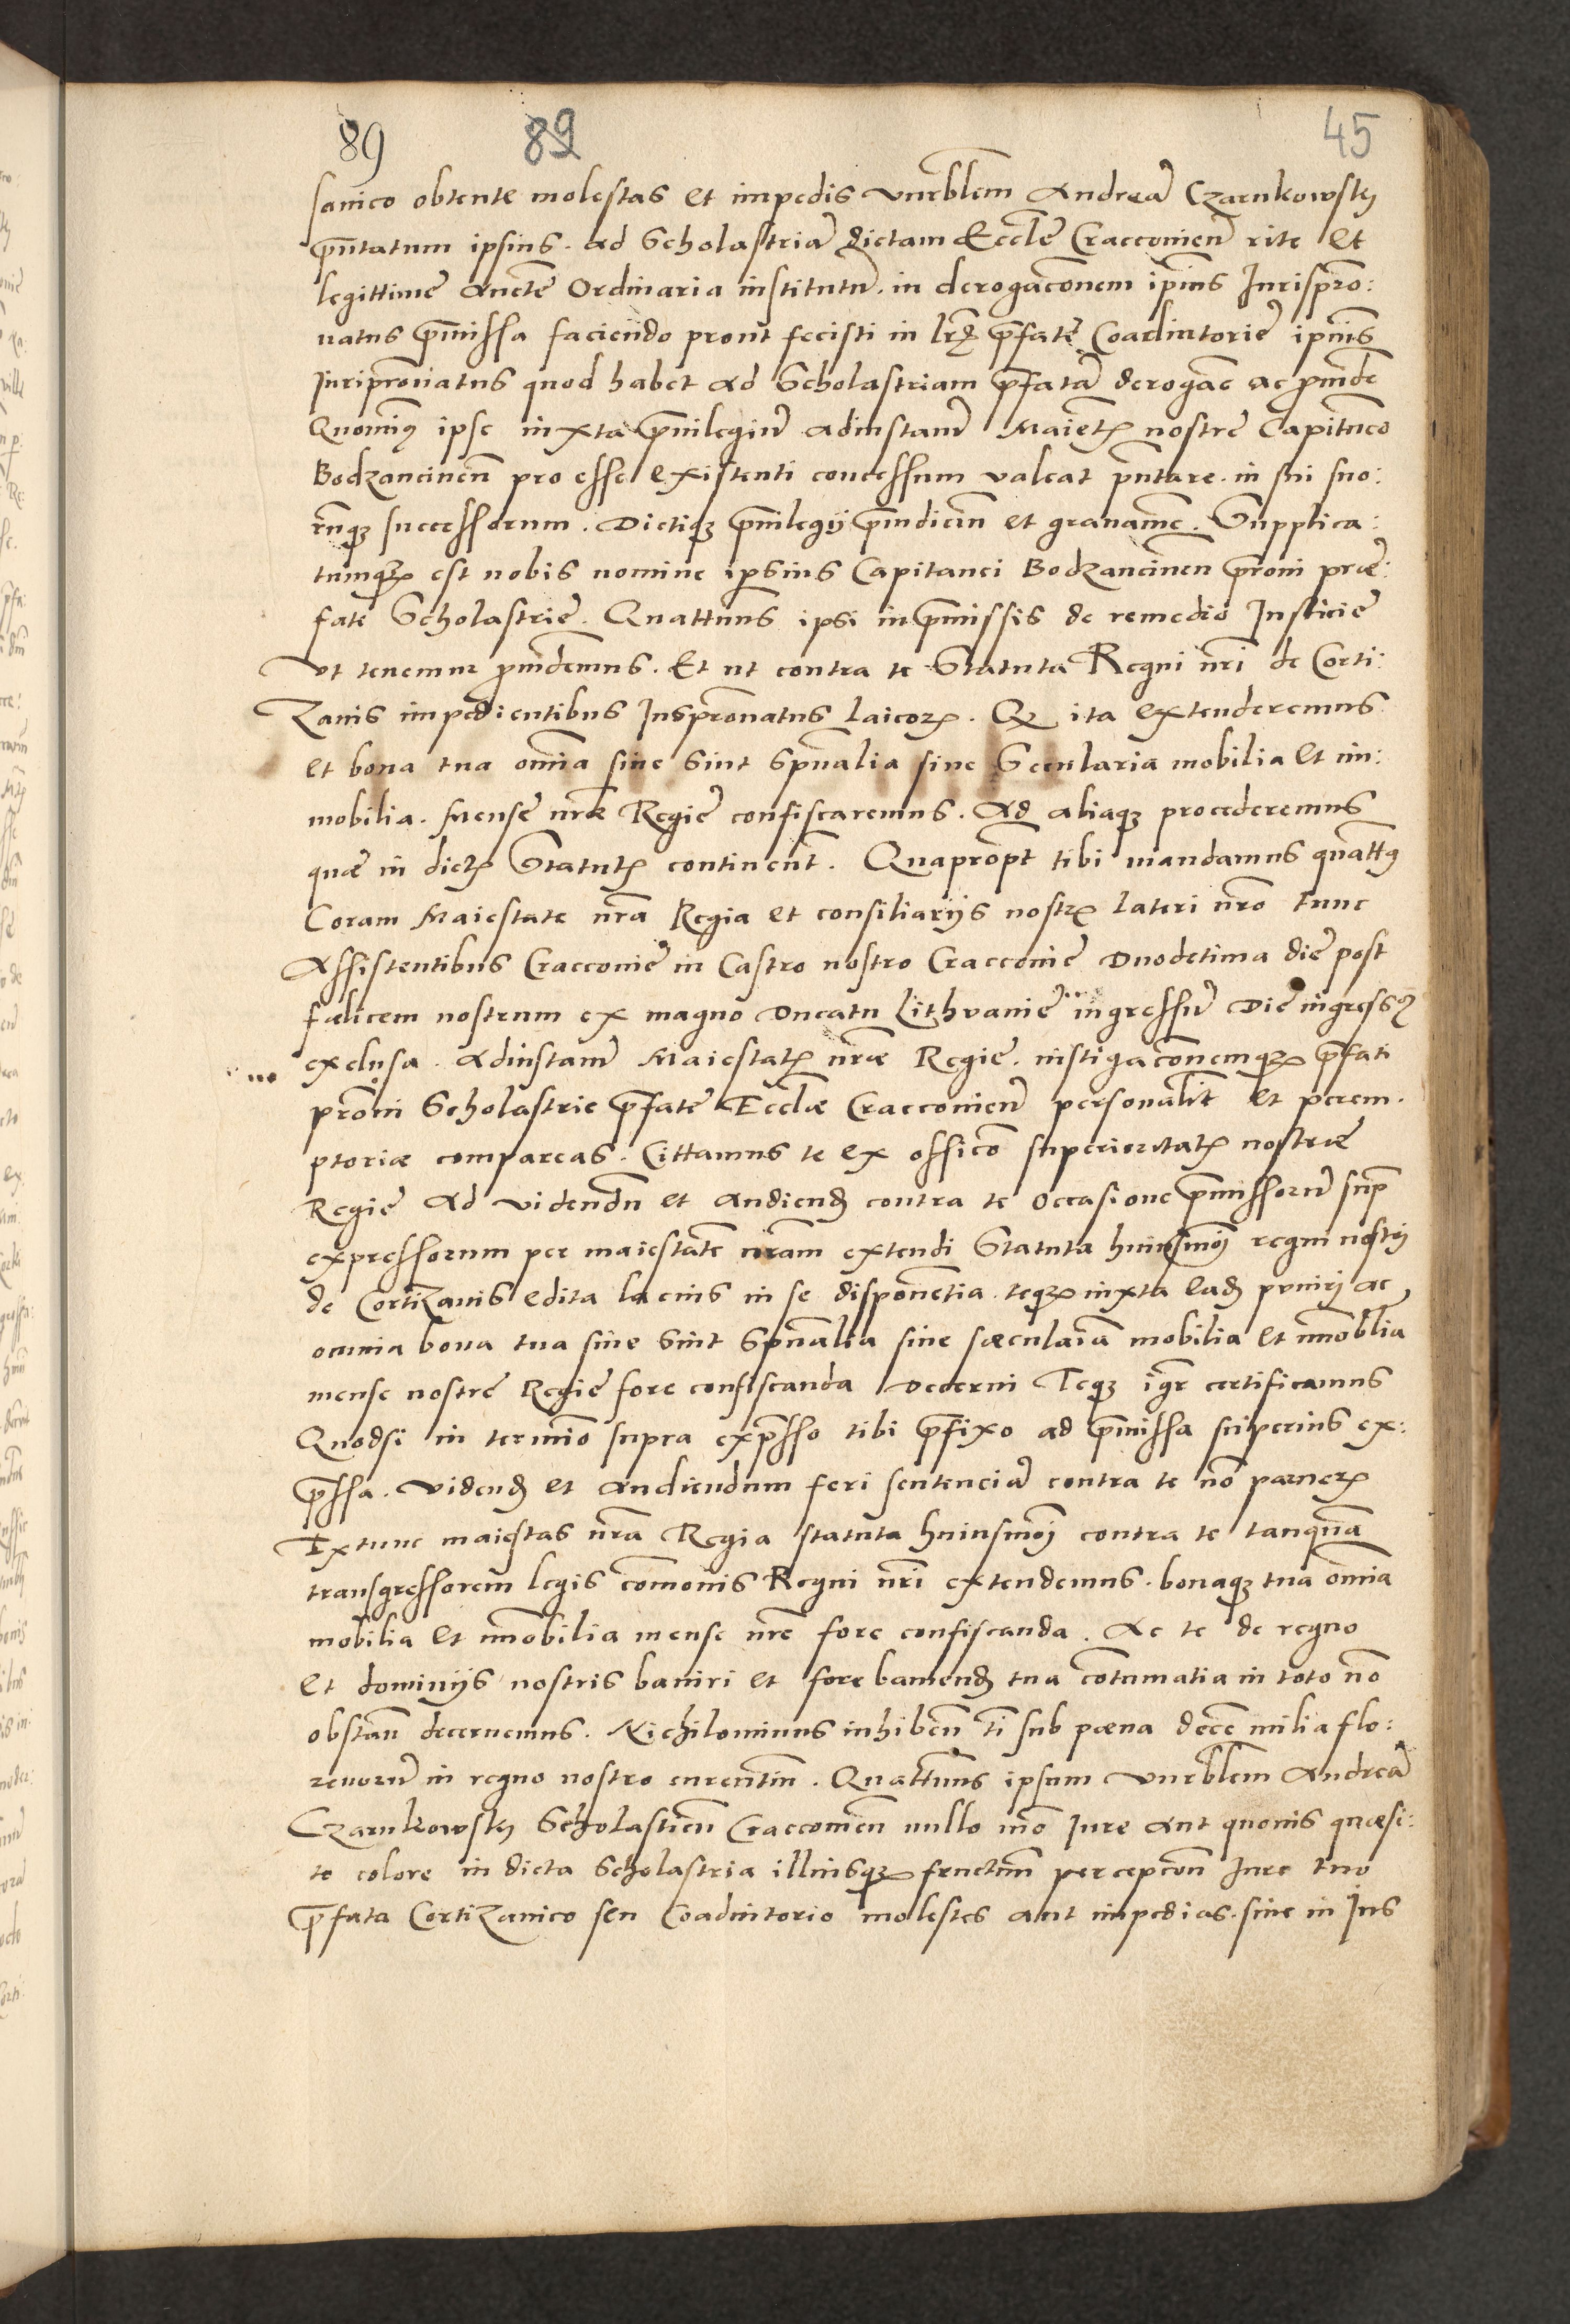 89 89 45
sanico obtente molestas et impedis vnrẽblem Andreã Czarnkowsky
p̃ntatum ipsius. ad Scholastriã dictam Eccl̃e Cracconieñ rite et
legittime Auctẽ Ordinaria institutũ. in derogac̃onem ip̃ius Jurispr̃o:
natus p̃missa faciendo prout fecisti in lr̃is p̃fatẽ Coadiutorie ip̃ius
Juripr̃onatus quod habet ad Scholastriam p̃fatã derogãc ac p̃inde
Quominus ipse iuxta p̃uilegiũ adinstanũ Maiẽtis nostrẽ Capitaneo
Bodzancineñ pro esse existenti concessum valeat p̃ntare. in sui suo:
rumq3 successorum. Dictiq3 p̃uilegij p̃iudiciũ et grauamẽ. Supplica:
tumq3 est nobis nomine ipsius Capitanei Bodzancineñ p̃roni præ:
fatẽ Scholastriẽ. Quattinus ipsi in p̃missis de remedio Justiciẽ
Vt tenemur p̃uidemus. Et ut contra te Statuta Regni nr̃i de Corti:
Zanis impedientibus Juspr̃onatus laicor. Q3 ita extenderemus
et bona tua om̃ia siue sint Sp̃ualia siue Secularia mobilia et im:
mobilia. Mensẽ nr̃æ Regiẽ confiscaremus. Ad aliaq3 procederemus
quæ in dictis Statutis continent̃. Quapropt̃ tibi mandamus quatt9
Coram Maiestate nr̃a Regia et consiliarijs nostris lateri nr̃o tunc
Assistentibus Cracconiẽ in Castro nostro Cracconiẽ Duodetima diẽ post
fælicem nostrum ex magno Ducatu Lithvaniẽ ingressũ Diẽ ingress9
exclusa. Adinstanũ Maiestatis nr̃æ Regiẽ. instigac̃onemq3 p̃fati
pr̃oni Scholastrie p̃fatẽ Eccl̃æ Cracconieñ personalit̃ et perem.
ptoriæ compareas. Cittamus te ex officõ superioritatis nostræ
Regiẽ ad videndũ et audiend contra te occasione p̃missorũ sup̃
expressorum per maiestatẽ nr̃am extendi Statuta huiusmõi regni nostrj
de CortiZanis edita lacius in se disponẽtia. teq3 iuxta ead punirj ac
omnia bona tua siue sint Sp̃ualia siue sæcularia mobilia et im̃oblia
mense nostrẽ Regiẽ fore confiscanda Decerni Teq3 igr̃ certificamus
Quodsi in termino supra exp̃sso tibi p̃fixo ad p̃missa superius ex:
p̃ssa. videnđ et Audiendum feri sentenciã contra te nõ paruer
Extunc maiestas nr̃a Regia statuta huiusmõj contra te tanquã
transgressorem legis com̃onis Regni nr̃i extendemus. bonaq3 tua om̃ia
mobilia et im̃obilia mense nr̃e fore confiscanda. Ac te de regno
et dominijs nostris baniri et fore baniend tua cõtumatia in toto nõ
obstañ decernemus. Nichilominus inhibeñ ti sub pæna decẽ milia flo:
renorũ in regno nostro currentiũ. Quattinus ipsum vnrẽblem Andreã
Czarnkowsky Scholasticũ Cracconieñ nullo mõ Jure aut quouis quæsi:
to colore in dicta Scholastria illiusq3 fructuũ percepc̃on Jure tuo
p̃fata CortiZanico seu Coadiutorio molestes aut impedias. siue in Jus